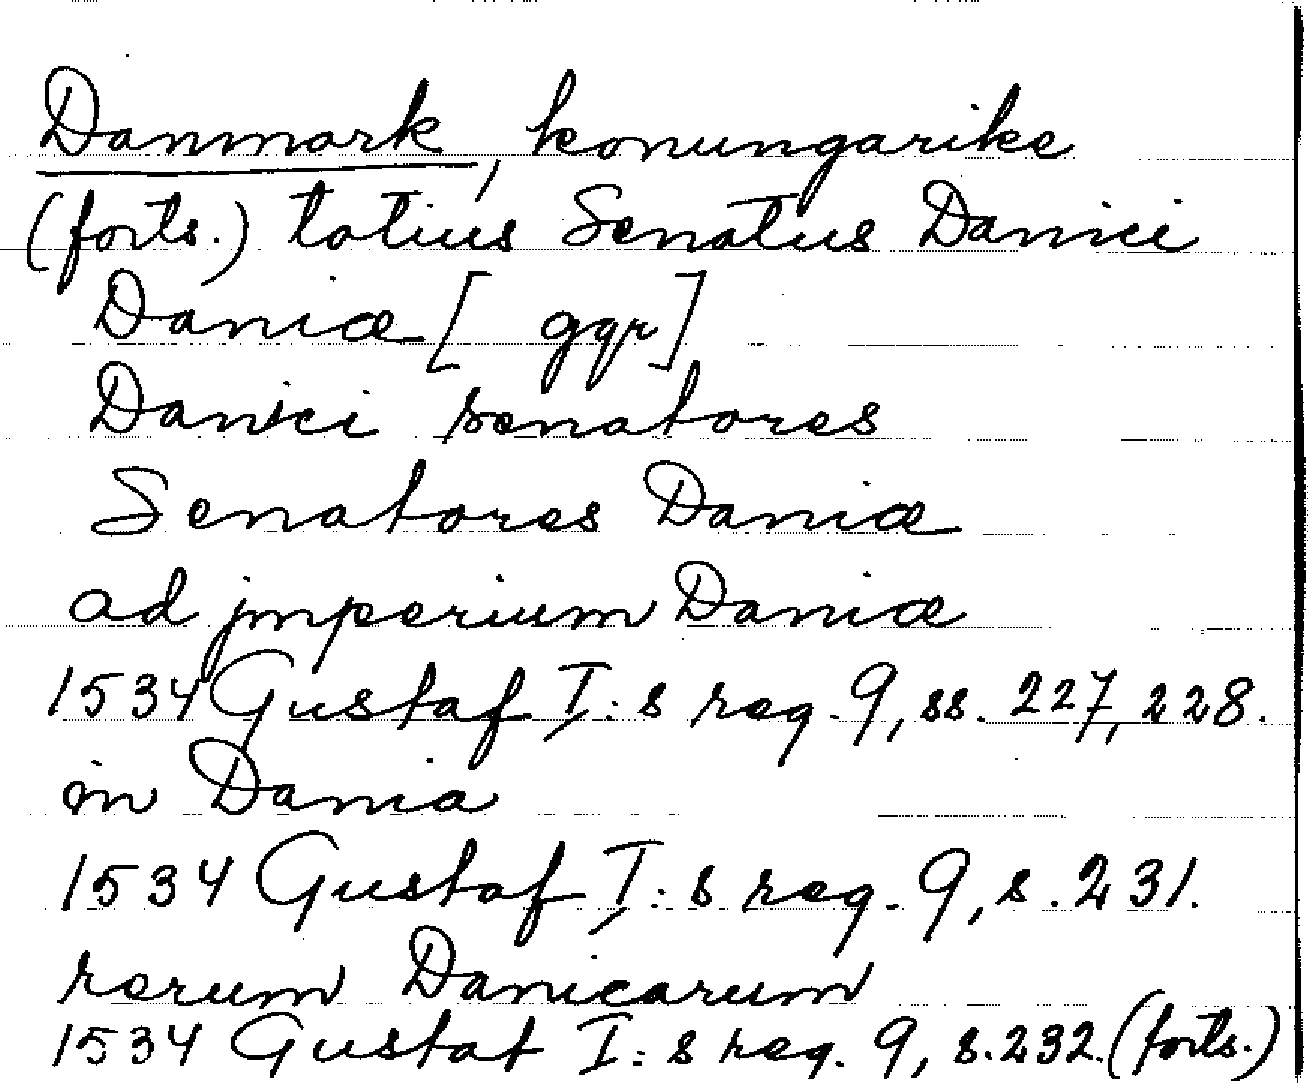 Danmark, konungarike
(forts.) totius Senatus Danici
Daniæ [ ggr]
Danici senatores
Senatores Daniæ
ad jmperium Daniæ
1534 Gustaf I:s reg. 9, ss. 227, 228.
in Dania
1534 Gustaf I:s reg. 9, s. 231.
rerum Danicarum
1534 Gustaf I:s reg. 9, s. 232. (forts.)